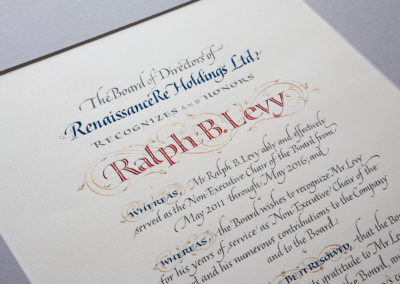 The Board of Directors of
RenaissanceRe Holdings Ltd.
RECOGNIZES AND HONORS
Ralph B. Levy
WHEREAS, Mr Ralph B. Levy ably and effectively
served as the Non-Executive Chair of the Board from
May 2011 through May 2016; and
WHEREAS, the Board wishes to recognize Mr Levy
for his years of service as Non-Executive Chair of the
and his numerous contributions to the Company
and to the Board;
BE IT RESOLVED, that the Boa
gratitude to Mr Le